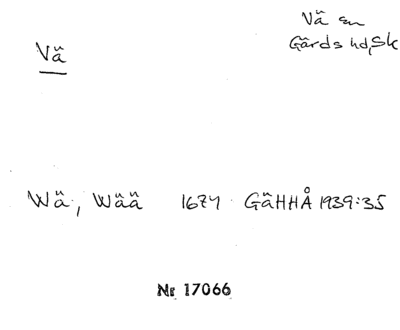 Vä sn
Gärds hd, Sk
Vä
Wä, Wää 1671 GäHHÅ 1939:35
Nr 17066